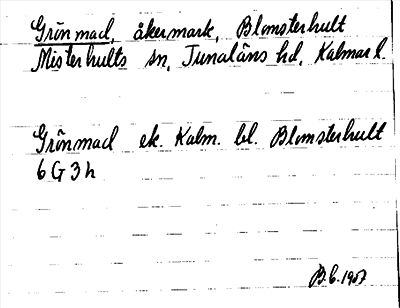 Grönmad, åkermark, Blomsterhult
Misterhults sn, Tunaläns hd, Kalmar l.
Grönmad ek. Kalm. bl. Blomsterhult
6 G 3 h
B.C. 1957